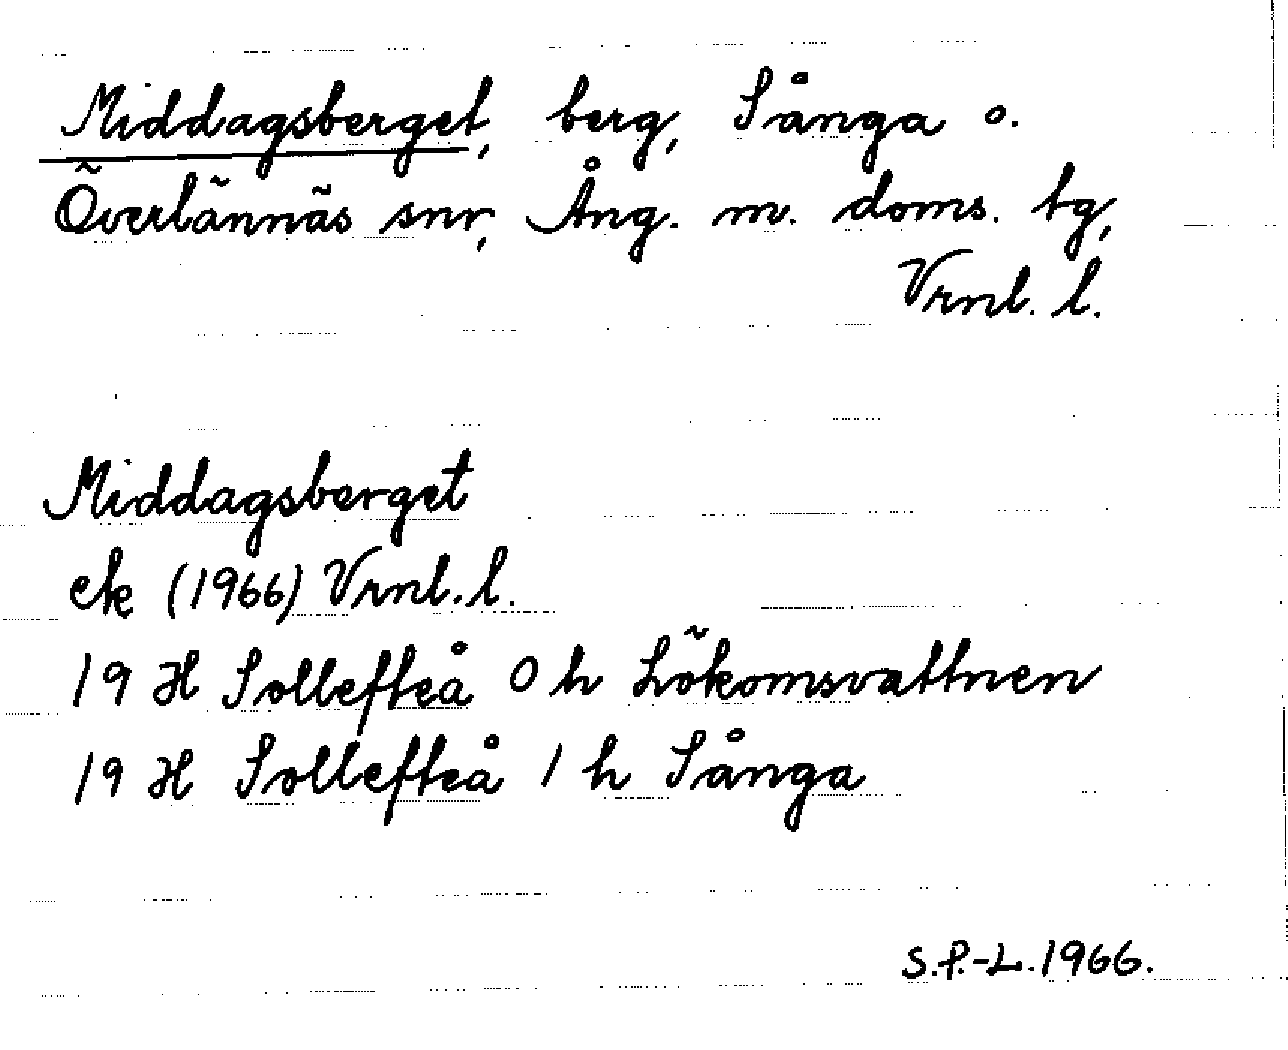 Middagsberget, berg, Sånga o.
Överlännäs snr, Ång. m. doms. tg,
Vrnl. l.
Middagsberget
ek (1966) Vrnl. l.
19 H Sollefteå 0 h Lökomsvattnen
19 H Sollefteå 1 h Sånga
S.P.-L. 1966.